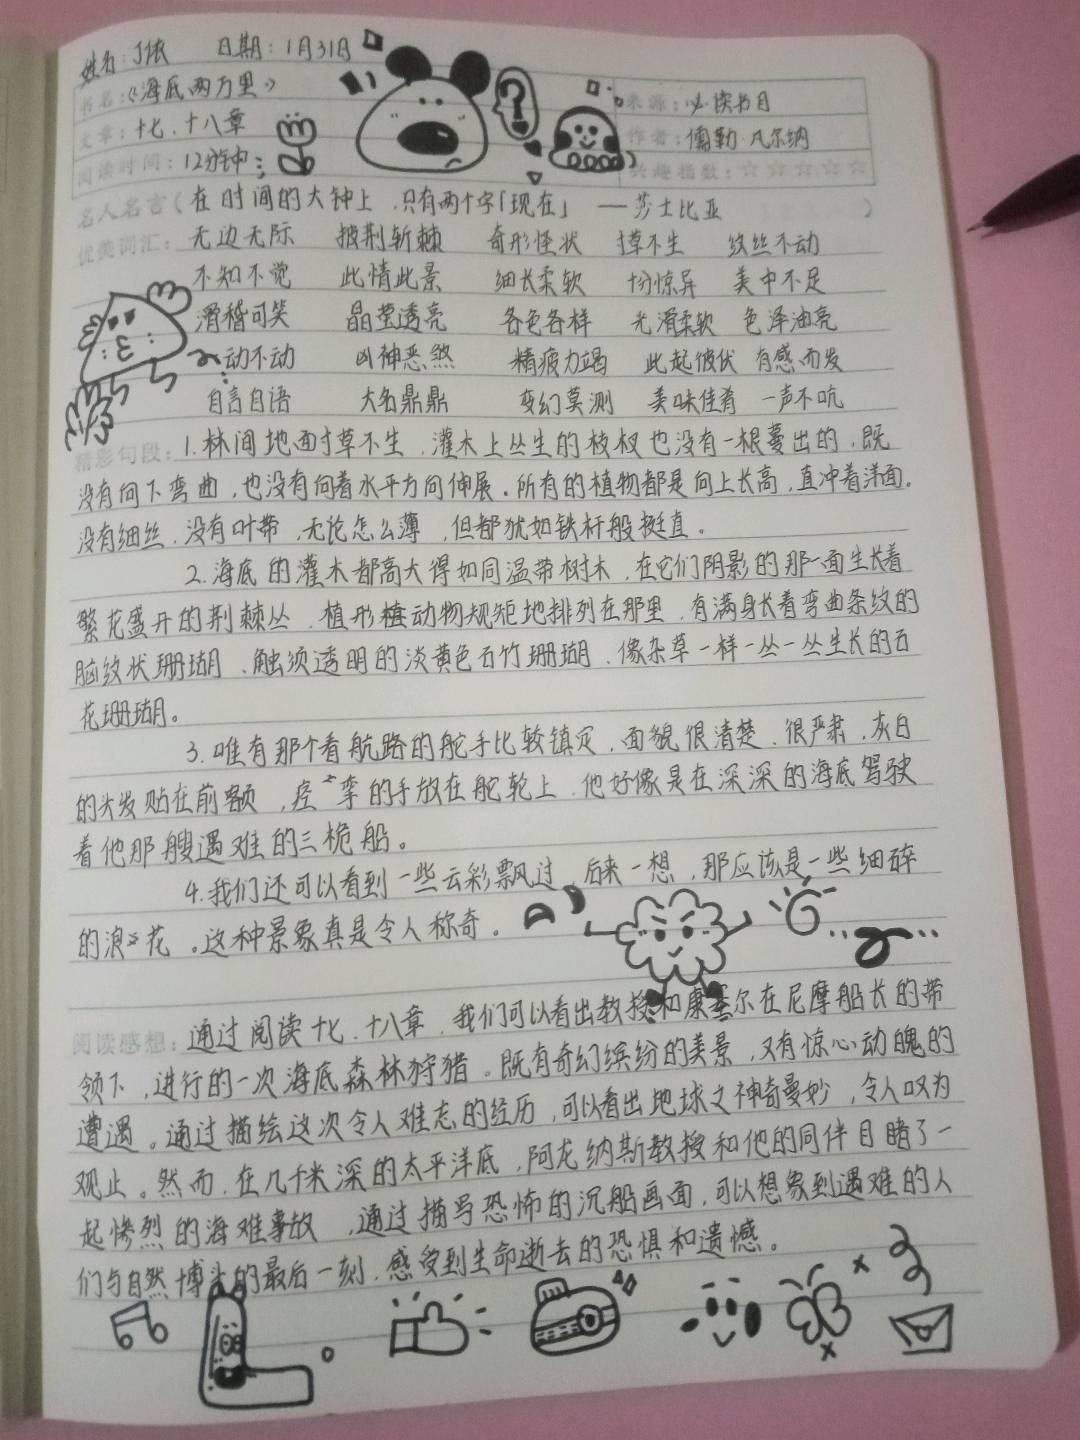 姓名：丁依 日期：1月31日
书名：《海底两万里》 来源：必读书目
文章：十七、十八章 作者：儒勒·凡尔纳
阅读时间：12分钟 兴趣指数：☆☆☆☆☆
名人名言（在时间的大钟上，只有两个字「现在」 ——莎士比亚 ）
优美词汇：无边无际 披荆斩棘 奇形怪状 寸草不生 纹丝不动
不知不觉 此情此景 细长柔软 十分惊异 美中不足
滑稽可笑 晶莹透亮 各色各样 光滑柔软 色泽油亮
一动不动 凶神恶煞 精疲力竭 此起彼伏 有感而发
自言自语 大名鼎鼎 变幻莫测 美味佳肴 一声不吭
精彩句段：1.林间地面寸草不生，灌木上丛生的枝杈也没有一根蔓出的，既
没有向下弯曲，也没有向着水平方向伸展。所有的植物都是向上长高，直冲着洋面。
没有细丝，没有叶带，无论怎么薄，但都犹如铁杆般挺直。
2.海底的灌木都高大得如同温带树木，在它们阴影的那一面生长着
繁花盛开的荆棘丛，植形动物规矩地排列在那里，有满身长着弯曲条纹的
脑纹状珊瑚、触须透明的淡黄色石竹珊瑚、像杂草一样一丛一丛生长的石
花珊瑚。
3.唯有那个看航路的舵手比较镇定，面貌很清楚、很严肃，灰白
的头发贴在前额，痉挛的手放在舵轮上，他好像是在深深的海底驾驶
着他那艘遇难的三桅船。
4.我们还可以看到一些云彩飘过，后来一想，那应该是一些细碎
的浪花。这种景象真是令人称奇。
阅读感想：通过阅读十七、十八章，我们可以看出教授和康塞尔在尼摩船长的带
领下，进行的一次海底森林狩猎。既有奇幻缤纷的美景，又有惊心动魄的
遭遇。通过描绘这次令人难忘的经历，可以看出地球之神奇曼妙，令人叹为
观止。然而，在几千米深的太平洋底，阿龙纳斯教授和他的同伴目睹了一
起惨烈的海难事故，通过描写恐怖的沉船画面，可以想象到遇难的人
们与自然搏斗的最后一刻，感受到生命逝去的恐惧和遗憾。